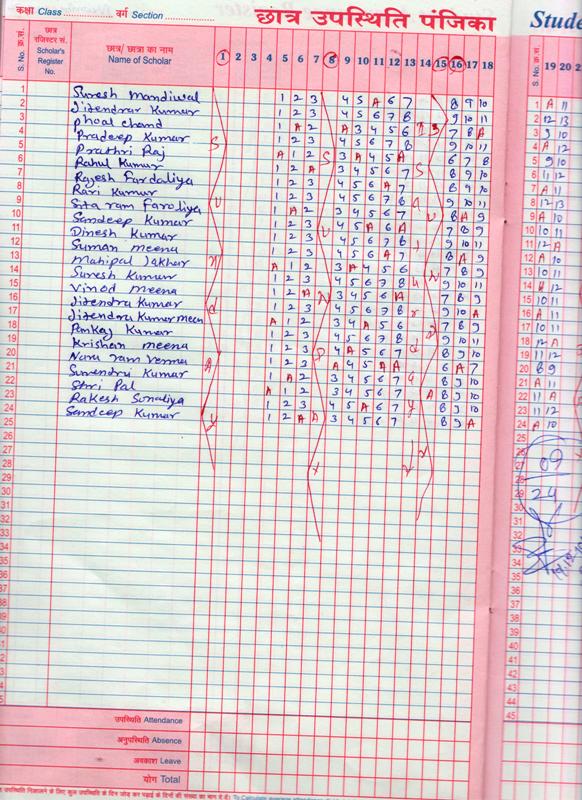 कक्षा Class वर्ग Section छात्र उपस्थिति पंजिका Stude
S. No. क्र.सं. छात्र रजिस्टर सं. Scholar's Register No. छात्र/ छात्रा का नाम Name of Scholar 1 2 3 4 5 6 7 8 9 10 11 12 13 14 15 16 17 18 S. No. क्र.सं. 19 20 2
1 Suresh Mandiwal 1 2 3 4 5 A 6 7 8 9 10 1 A 11
2 Jitendrar Kumar 1 2 3 4 5 6 7 8 9 10 11 2 12 13
3 phoal chand 1 A 2 A 3 4 5 6 7 8 A 3 9 10
4 Pradeep Kumar 1 2 3 4 5 6 7 8 9 10 11 4 A 12
5 Prathri Raj A 1 2 3 A 4 5 A 6 7 8 5 9 10
6 Rahul Kumar 1 2 A 3 4 5 6 7 8 9 10 6 11 12
7 Rajesh Fardaliya 1 2 3 4 5 6 A 7 8 9 10 7 A 11
8 Ravi Kumar 1 2 3 4 5 6 7 8 9 10 11 8 12 13
9 Sita ram Farodiya 1 A 2 3 4 5 6 7 8 A 9 9 A 10
10 Sandeep Kumar 1 2 3 4 5 A 6 A 7 8 9 10 10 11
11 Dinesh Kumar 1 2 3 4 5 6 7 8 9 10 11 11 12 A
12 Suman meena 1 2 3 4 5 6 A 7 8 A 9 12 A 10
13 Mahipal Jakhar A 1 2 3 A 4 5 6 7 8 9 13 10 11
14 Suresh Kumar 1 2 3 4 5 6 7 8 9 10 11 14 12
15 Vinod meena 1 2 A 3 4 5 6 A 7 8 9 15 10 11
16 Jitendra Kumar 1 2 3 4 5 6 7 8 9 10 A 16 A 11
17 Jitendra Kumar meen A 1 2 3 4 A 5 6 7 8 9 17 10 11
18 Pankaj Kumar 1 2 3 4 5 6 7 8 9 10 11 18 12 A
19 Krishan meena 1 2 3 4 A 5 6 7 8 9 10 19 11 12
20 Naru ram verma 1 2 3 A 4 5 A A 6 A 7 20 8 9
21 Surendra Kumar 1 A 2 3 4 5 6 7 8 9 10 21 A 11
22 Shri Pal A 1 2 3 4 5 6 7 A 8 9 10 22 11 A
23 Rakesh Sonaliya 1 2 3 4 5 A 6 7 8 9 10 23 11 12
24 Sandeep Kumar 1 2 A A 3 4 5 6 7 8 9 A 24 A 10
25
26
27 09
28
29 24
30
31
32
33
34
35
45
उपस्थिति Attendance
अनुपस्थिति Absence
अवकाश Leave
योग Total